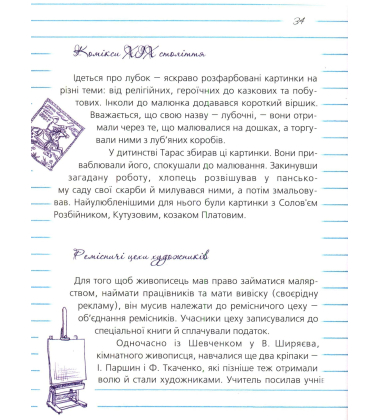 34
Комікси XIX століття
Ідеться про лубок – яскраво розфарбовані картинки на
різні теми: від релігійних, героїчних до казкових та побу-
тових. Інколи до малюнка додавався короткий віршик.
Вважається, що свою назву – лубочні, – вони отри-
мали через те, що малювалися на дошках, а торгу-
вали ними з луб'яних коробів.
У дитинстві Тарас збирав ці картинки. Вони при-
ваблювали його, спокушали до малювання. Закінчивши
загадану роботу, хлопець розвішував у пансько-
му саду свої скарби й милувався ними, а потім змальову-
вав. Найулюбленішими для нього були картинки з Солов'єм
Розбійником, Кутузовим, козаком Платовим.
Ремісничі цехи художників
Для того щоб живописець мав право займатися маляр-
ством, наймати працівників та мати вивіску (своєрідну
рекламу), він мусив належати до ремісничого цеху –
об'єднання ремісників. Учасники цеху записувалися до
спеціальної книги й сплачували податок.
Одночасно із Шевченком у В. Ширяєва,
кімнатного живописця, навчалися ще два кріпаки –
І. Паршин і Ф. Ткаченко, які пізніше теж отримали
волю й стали художниками. Учитель посилав учнів